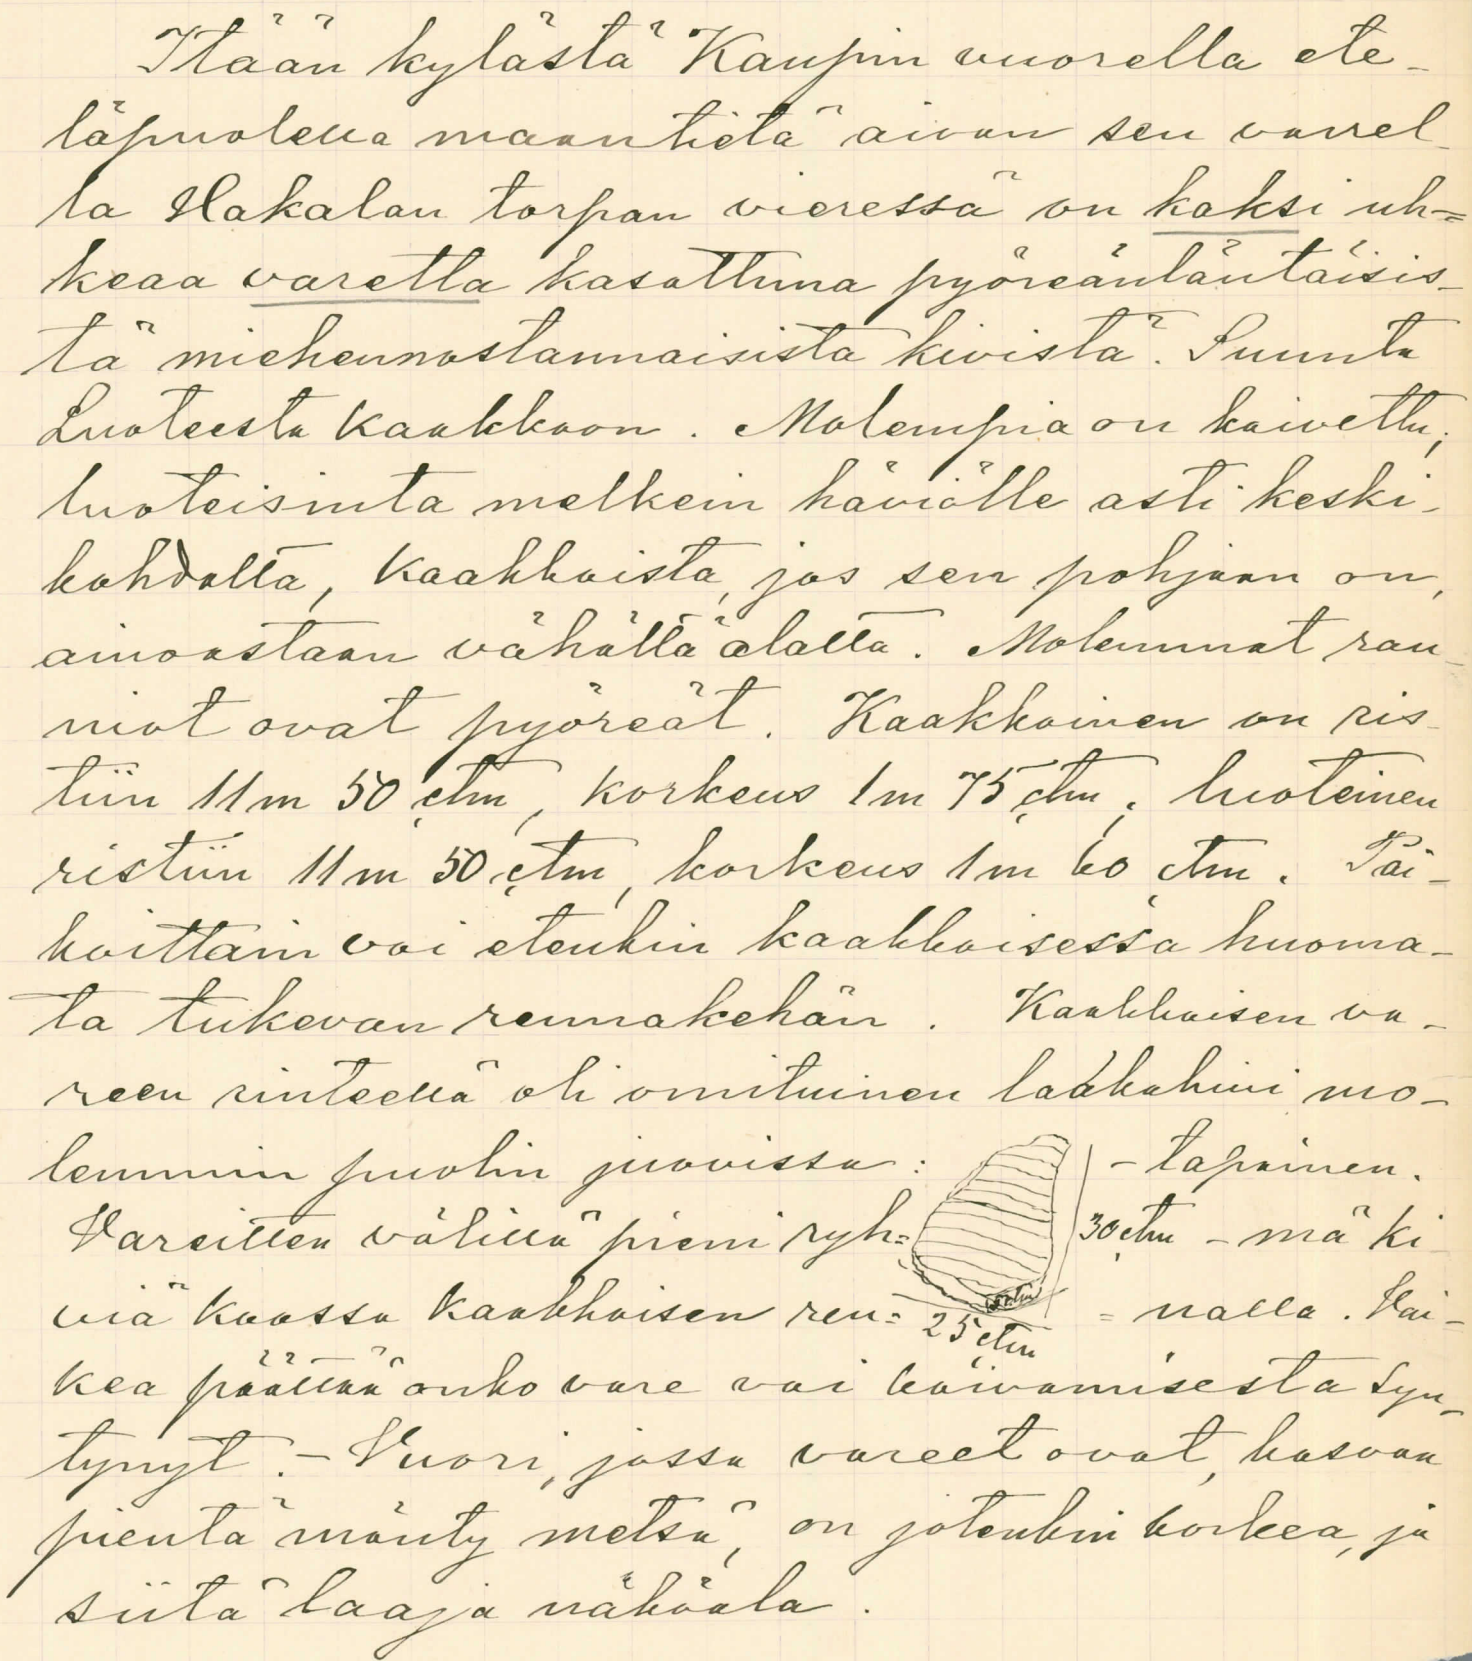 Itään kylästä Kaupin vuorella ete-
läpuolella maantietä aivan sen varrel-
la Hakalan torpan vieressä on kaksi uh=
keaa varetta kasattuna pyöreänläntäisis-
tä miehennostannaisista kivistä. Suunta
Luoteesta Kaakkoon. Molempia on kaivettu,
luoteisinta melkein häviölle asti keski-
kohdalta, Kaakkoista, jos sen pohjaan on,
ainoastaan vähältä alalta. Molemmat rau-
niot ovat pyöreät. Kaakkoinen on ris-
tiin 11 m 50 ctm, korkeus 1 m 75 ctm, luoteinen
ristiin 11 m 50 ctm, korkeus 1 m 60 ctm. Pai-
koittain voi etenkin kaakkoisessa huoma-
ta tukevan reunakehän. Kaakkoisen va-
reen rinteellä oli omituinen laakakivi mo-
lemmin puolin juovissa: - tapainen.
Vareitten välillä pieni ryh= 30 ctm - mä ki-
viä kaassa Kaakkoisen reu= 25 ctm = nalla. Vai-
kea päättää onko vare vai kaivamisesta syn-
tynyt. - Vuori, jossa vareet ovat, kasvaa
pientä mänty metsä, on jotenkin korkea, ja
siitä laaja näköala.